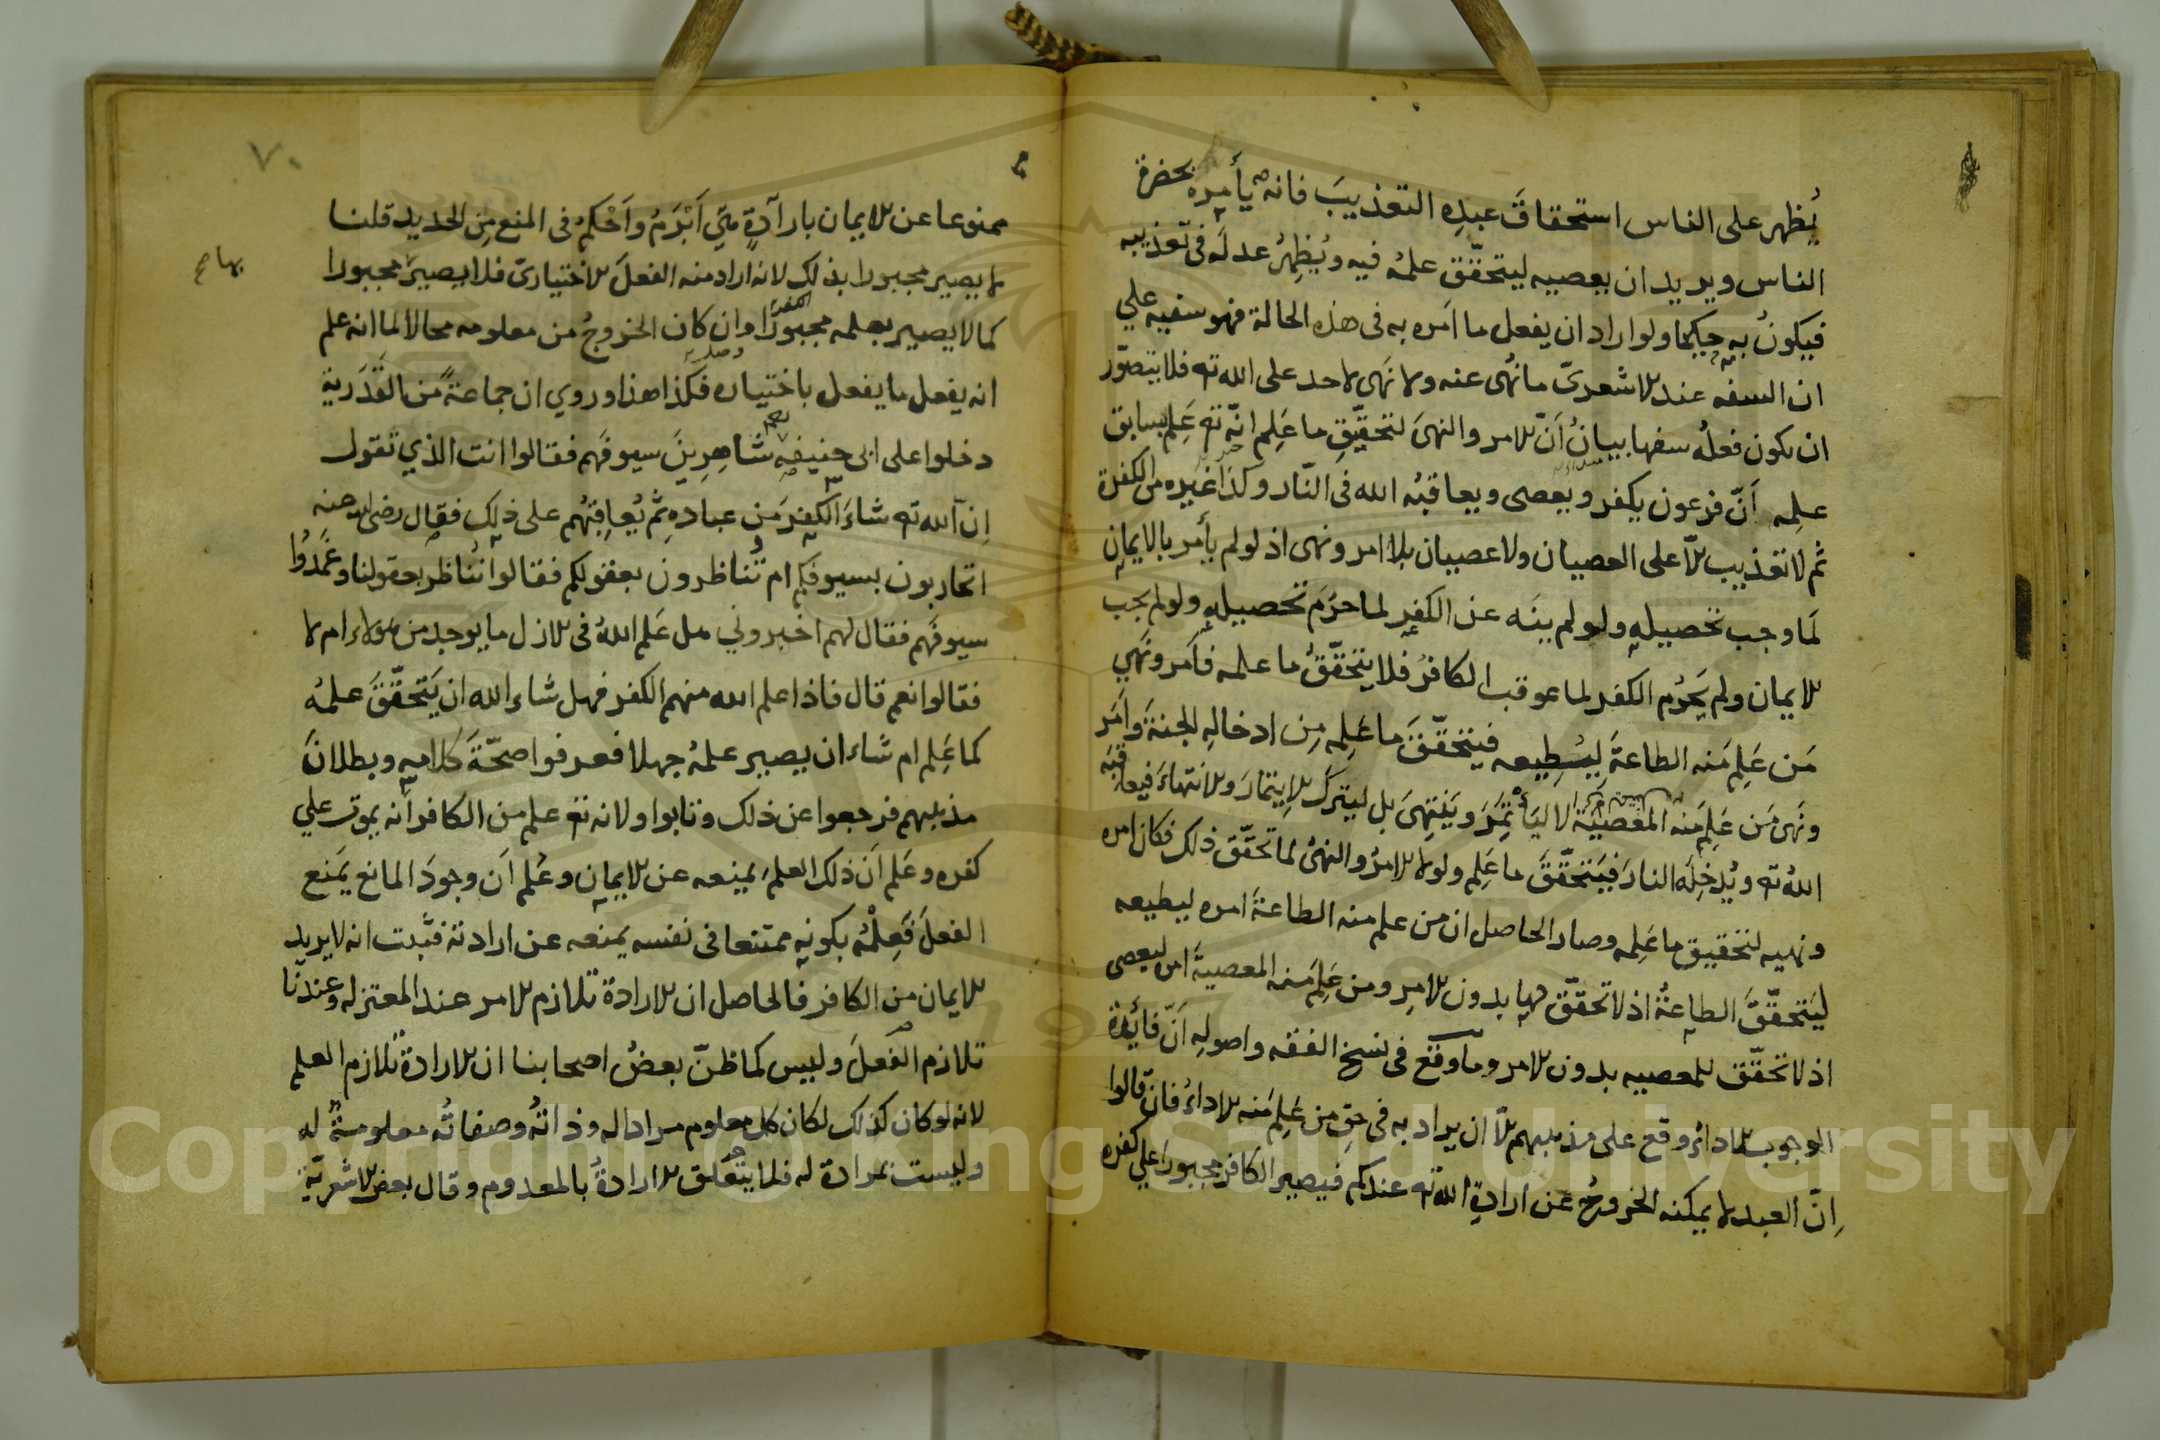 يُظهر على الناس استحقاقَ عبدِه التعذيبَ فانه يأمره بحضرة
الناس ويريد ان يعصيه ليتحقّق علمُه فيه ويُظهِرُ عدلَه فى تعذيبه
فيكونُ به حكيما ولو اراد ان يفعل ما اَمره به فى هذه الحالة فهو سفيه علي
ان السفه عند الاشعرىّ ما نُهى عنه ولا نَهى لاحد على الله تعه فلا يتصوّر
ان يكون فعلُه سفها بيانُ اَنّ الامر والنهىَ لتحقيّقِ ما عَلِم انّه تعه عَلِم بسابق
علِمه اَنّ فرعون يكفر ويعصى ويعاقبُه الله فى النّار وكذا غيره من الكفرة
ثم لا تعذيب الّا على العصيان ولا عصيان بلا امر ونهى اذ لو لم يأمر بالايمان
لَما وجب تحصيله ولو لم ينَه عن الكفر لما حرُم تحصيله ولو لم يجب
الايمان ولم يَحرُم الكفر لما عوقب الكافرُ فلا يتحقّقُ ما علمه فاَمر ونَهي
مَن عَلِم مَنه الطاعةَ ليُطِيعه فيتحقّقَ ما عَلِمه مِن ادخالِهِ الجنةَ واَمَر
ونَهى مَن عَلِم مَنه المعَصيَة لا ليَأْتَمِرَ ويَنتهِىَ بل ليترك الايتمارَ والانتهاءَ فيعاقبَه
اللهُ تعه ويُدخِلَه النارَ فيَتحقّقَ ما عَلِم ولولا الامرُ والنهىُ لما تحقّق ذلك فكان امره
ونهيه لتحقيق ما عَلِمه وصار الحاصل ان من علم منه الطاعةَ امره ليطيعه
ليَتحقّقَ الطاعةُ اذ لا تحقّقَ لها بدون الامرِ ومن عَلِم مَنه المعصيةَ امره ليعصى
اذ لا تحقّقَ للمعصيه بدون الامر وما وقع فى نسخ الفقه واصولِه اَنّ فائدة
الوجوب الاداءُ وقع على مذهبهم الّا ان يراد به فى حقِ من عَلِم مَنه الاداءُ فان قالوا
اِنّ العبد لا يمكنه الخروجُ عن ارادةِ الله تعه عندكم فيصير الكافر مجبورا على كفره
٧٠
ممنوعا عن الايمان بارادةٍ هي اَبْرَمُ واَحْكمُ فى المنع مِن الحديد قلنا
لا يصير مجبورا بذلك لانه اراد منه الفعلَ الاختيارىّ فلا يصير مجبورا
بها صح
كما لا يصير بعلمه مجبورًا وان كان الخروجُ من معلومه محالا لما انه علم
انه يفعل ما يفعل باختياره فكذا هذا وروي ان جماعةً من القَدَرية
دخلوا على ابى حنيفه شاهِرِينَ سيوفَهم فقالوا انت الذي تقول
اِن الله تعه شاءَ الكفر مَن عباده ثم يُعاقِبُهم على ذلك فقال رضى الله عنه
اتحاربون بسيوفكم ام تُناظرون بعقولكم فقالوا نُناظر بعقولنا وغمَدُوا
سيوفَهم فقال لهم اخبروني هل عَلِم اللهُ فى الازل ما يوجد من هؤلاء ام لا
فقالوا نعم قال فاذا علم الله منهم الكفر فهل شاء الله ان يَتحقّقَ علمُه
كما عَلِم ام شاء ان يصير علمُه جهلا فعرفوا صحّةَ كلامِهِ وبطلانَ
مذهبهم فرجعوا عن ذلك وتابوا ولانه تعه علم من الكافر اَنه يموت علي
كفره وعَلم اَن ذلك العلم يَمنعه عن الايمان وعُلم اَن وجودَ المانع يمَنع
الفعلَ فَعِلْمُه بكونِهِ ممتنعا فى نفسه يمنعه عن ارادته فثَبت انه لا يريد
الايمان من الكافر فالحاصل ان الارادة تلازم الامر عند المعتزله وعندنا
تلازم الفعلَ وليس كما ظنّ بعضُ اصحابنا ان الارادة تُلازم العلم
لانه لو كان كذلك لكان كل معلوم مرادا له وذاتُه وصفاتُه معلومةٌ له
وليست بمرادة له فلما يتعَلق الارادةُ بالمعدوم وقال بعض الاشعريّة
Copyright © King Saud University